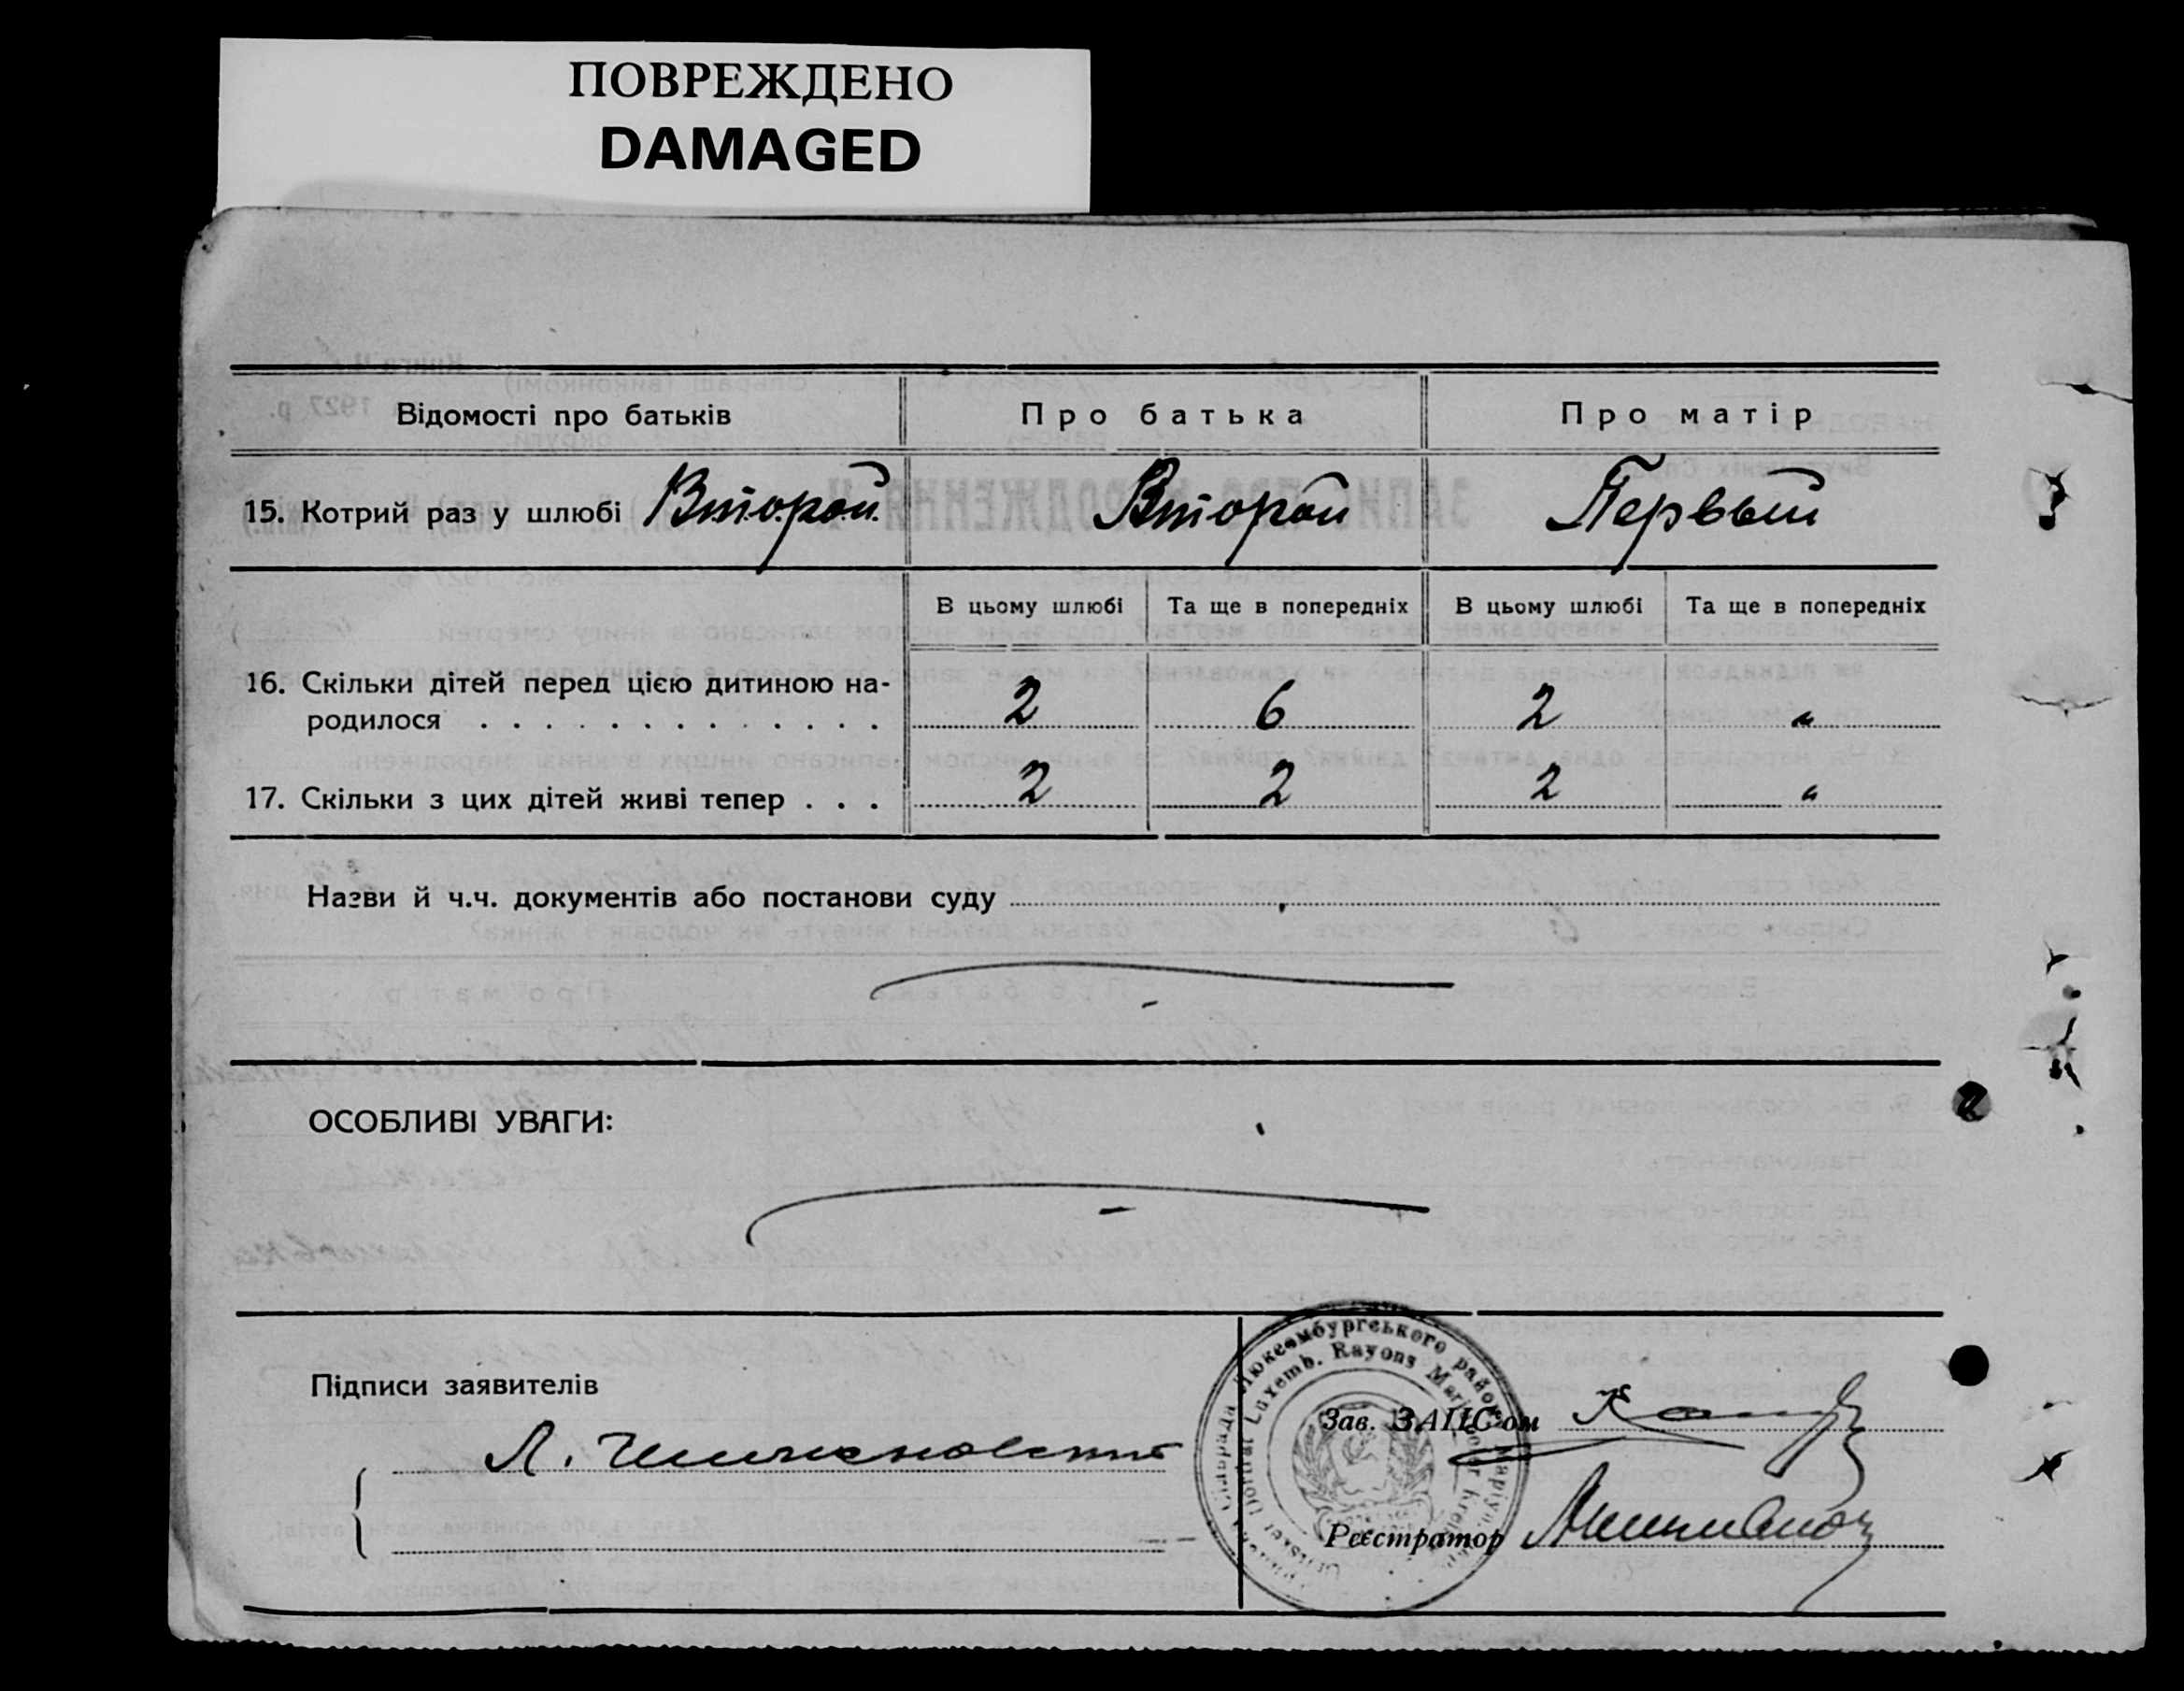 ПОВРЕЖДЕНО
DAMAGED
Відомості про батьків
Про батька
Про матір
15. Котрий раз у шлюбі Второй
Второй
Первый
В цьому шлюбі
Та ще в попередніх
В цьому шлюбі
Та ще в попередніх
16. Скільки дітей перед цією дитиною на-
родилося . . . . . . . . . . . . .
2
6
2
"
17. Скільки з цих дітей живі тепер . . .
2
2
2
"
Назви й ч.ч. документів або постанови суду
ОСОБЛИВІ УВАГИ:
2
Люксембургського району
Luxemb. Rayons
Підписи заявителів
Зав. ЗАГС'ом
Л.
Реєстратор